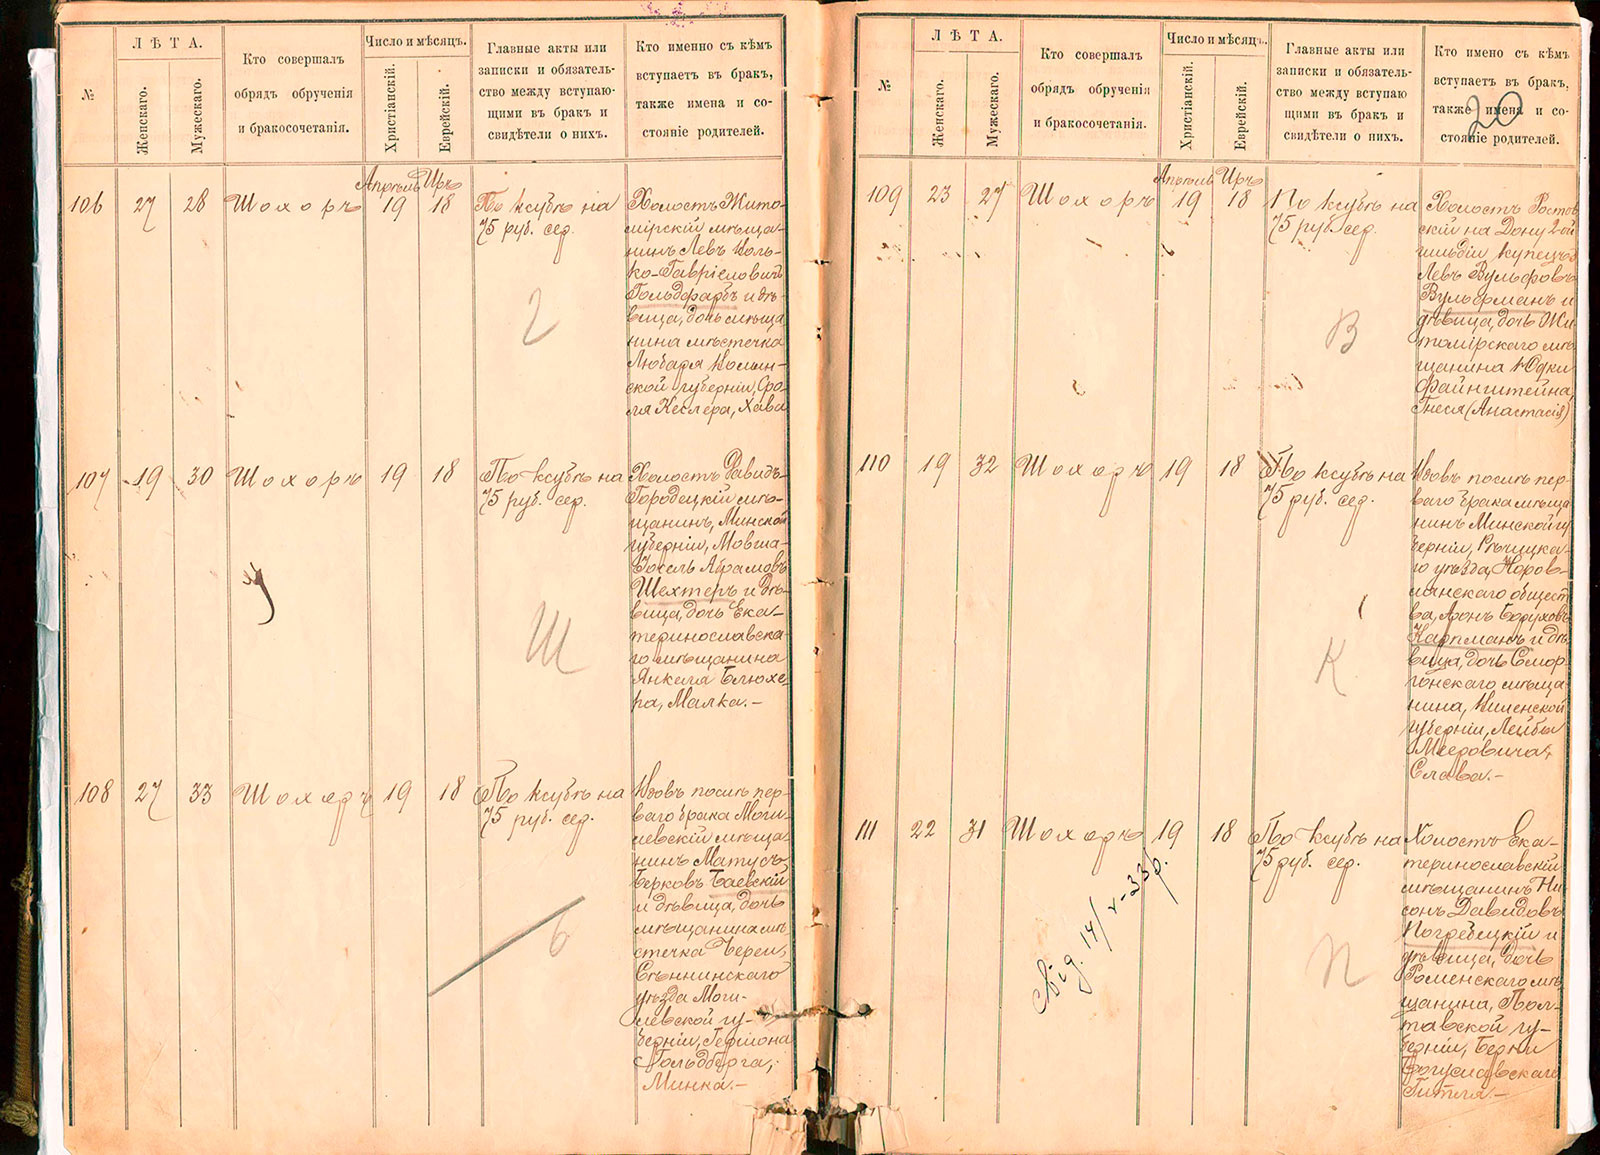 №
Л Ѣ Т А.
Женскаго.
Мужескаго.
Кто совершалъ
обрядъ обрученія
и бракосочетанія.
Число и мѣсяцъ.
Христіанскій.
Еврейскій.
Главные акты или
записки и обязатель-
ство между вступаю-
щими въ бракъ и
свидѣтели о нихъ.
Кто именно съ кѣмъ
вступаетъ въ бракъ,
также имена и со-
стояніе родителей.
Апрѣль Иръ
106 27 28 Шохоръ 19 18
По ксубѣ на
75 руб. сер.
Г
Холостъ Жито-
мірскій мѣща-
нинъ Левъ Іоль-
ко-Гавріеловичъ
Гольдфарбъ и дѣ-
вица, дочь мѣща
нина мѣстечка
Любаря Волын-
ской губерніи, Сро-
ля Кеслера, Хава
107 19 30 Шохоръ 19 18
По ксубѣ на
75 руб. сер.
Ш
Холостъ Давидъ-
Городецкій мѣ-
щанинъ, Минской
губерніи, Мовша-
Іосель Абрамовъ
Шехтеръ и дѣ-
вица, дочь Ека-
теринославска-
го мѣщанина
Янкеля Блюхе-
ра, Малка.-
108 27 33 Шохоръ 19 18
По ксубѣ на
75 руб. сер.
Б
Вдовъ послѣ пер-
ваго брака Моги-
левскій мѣща-
нинъ Матусъ
Берковъ Баевскій
и дѣвица, дочь
мѣщанина мѣ-
стечка Череи,
Сѣннинскаго
уѣзда Моги-
левской гу-
берніи, Гершона
Гольдберга,
Минка.-
№
Л Ѣ Т А.
Женскаго.
Мужескаго.
Кто совершалъ
обрядъ обрученія
и бракосочетанія.
Число и мѣсяцъ.
Христіанскій.
Еврейскій.
Главные акты или
записки и обязатель-
ство между вступаю
щими въ бракъ и
свидѣтели о нихъ.
Кто имено съ кѣмъ
вступаетъ въ бракъ,
также имена и со-
стояніе родителей.
20
Апрѣль Иръ
109 23 27 Шохоръ 19 18
По ксубѣ на
75 руб. сер.
В
Холостъ Ростов
скій на Дону 2-ой
гильдіи купецъ
Левъ Вульфовъ
Вульфманъ и
дѣвица, дочь Жи
томірскаго мѣ
щанина Юдки
Файнштейна,
Гнеся (Анастасія)
110 19 32 Шохоръ 19 18
По ксубѣ на
75 руб. сер.
К
Вдовъ послѣ пер-
ваго брака мѣща
нинъ Минской гу
берніи, Рѣчицка-
го уѣзда, Норов-
лянскаго общест
ва, Аронъ Боруховъ
Карпманъ и дѣ
вица, дочь Смор-
гонскаго мѣща-
нина, Виленской
губерніи, Лейбы
Мееровича,
Слава.-
111 22 31 Шохоръ 19 18
По ксубѣ на
75 руб. сер.
П
Холостъ Ека-
теринославскій
мѣщанинъ Ни-
сонъ Давидовъ
Погребецкій и
дѣвица, дочь
Роменскаго мѣ
щанина, Пол-
тавской гу-
берніи, Берки
Богуславскаго
Гитля.-